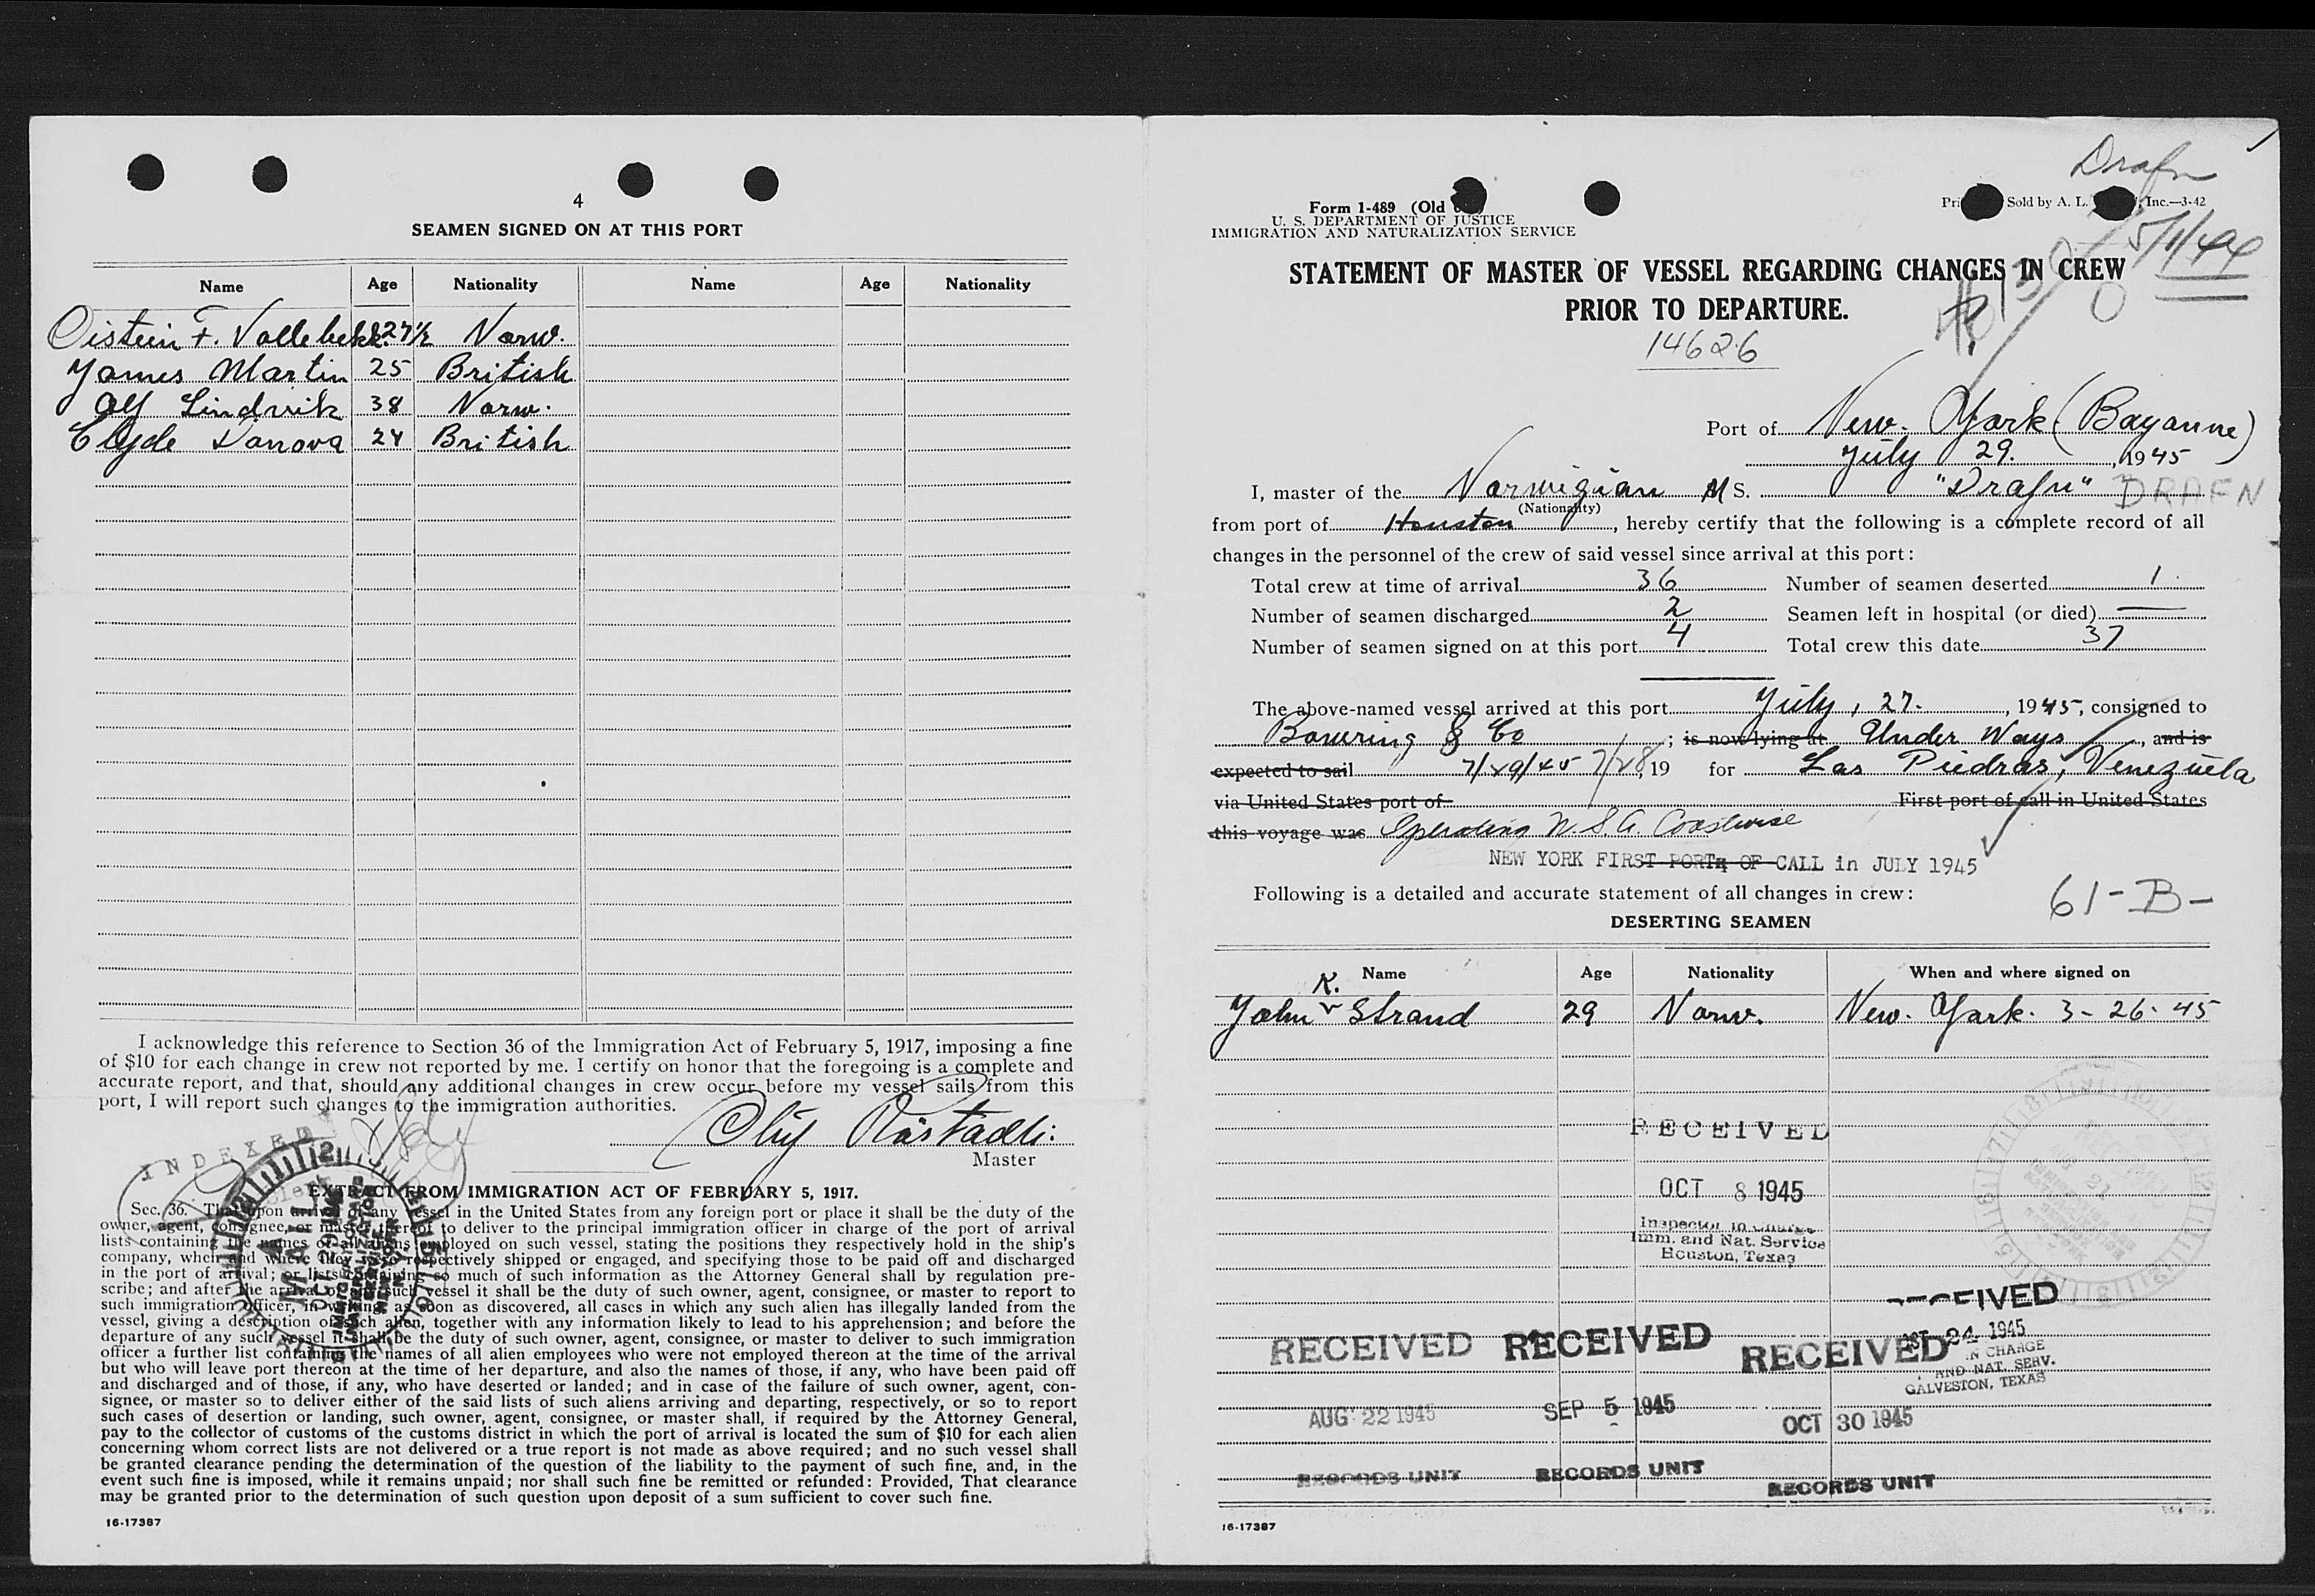 4
SEAMEN SIGNED ON AT THIS PORT
Name Age Nationality Name Age Nationality
Oistein F. Vollebekk 27½ Norw.
James Martin 25 British
Alf Lindvik 38 Norw.
Clyde Danova 24 British
I acknowledge this reference to Section 36 of the Immigration Act of February 5, 1917, imposing a fine
of $10 for each change in crew not reported by me. I certify on honor that the foregoing is a complete and
accurate report, and that, should any additional changes in crew occur before my vessel sails from this
port, I will report such changes to the immigration authorities.
Master
INDEXED
EXTRACT FROM IMMIGRATION ACT OF FEBRUARY 5, 1917.
Sec. 36. That upon arrival of any vessel in the United States from any foreign port or place it shall be the duty of the
owner, agent, consignee, or master thereof to deliver to the principal immigration officer in charge of the port of arrival
lists containing the names of all aliens employed on such vessel, stating the positions they respectively hold in the ship's
company, when and where they were shipped or respectively shipped or engaged, and specifying those to be paid off and discharged
in the port of arrival; or lists containing so much of such information as the Attorney General shall by regulation pre-
scribe; and after the arrival of any such vessel it shall be the duty of such owner, agent, consignee, or master to report to
such immigration officer, in writing, as soon as discovered, all cases in which any such alien has illegally landed from the
vessel, giving a description of such alien, together with any information likely to lead to his apprehension; and before the
departure of any such vessel it shall be the duty of such owner, agent, consignee, or master to deliver to such immigration
officer a further list containing the names of all alien employees who were not employed thereon at the time of the arrival
but who will leave port thereon at the time of her departure, and also the names of those, if any, who have been paid off
and discharged and of those, if any, who have deserted or landed; and in case of the failure of such owner, agent, con-
signee, or master so to deliver either of the said lists of such aliens arriving and departing, respectively, or so to report
such cases of desertion or landing, such owner, agent, consignee, or master shall, if required by the Attorney General,
pay to the collector of customs of the customs district in which the port of arrival is located the sum of $10 for each alien
concerning whom correct lists are not delivered or a true report is not made as above required; and no such vessel shall
be granted clearance pending the determination of the question of the liability to the payment of such fine, and, in the
event such fine is imposed, while it remains unpaid; nor shall such fine be remitted or refunded: Provided, That clearance
may be granted prior to the determination of such question upon deposit of a sum sufficient to cover such fine.
16-17387
Drafn
5/1/44
Form 1-489 (Old
Sold by A. L. Inc.—3-42
U. S. DEPARTMENT OF JUSTICE
IMMIGRATION AND NATURALIZATION SERVICE
STATEMENT OF MASTER OF VESSEL REGARDING CHANGES IN CREW
PRIOR TO DEPARTURE.
14626
Port of New. York (Bayonne)
July 29. , 1945
I, master of the Norwigian MS. "Drafn" DRAFN
(Nationality)
from port of Houston , hereby certify that the following is a complete record of all
changes in the personnel of the crew of said vessel since arrival at this port:
Total crew at time of arrival 36 Number of seamen deserted 1
Number of seamen discharged 2 Seamen left in hospital (or died) —
Number of seamen signed on at this port 4 Total crew this date 37
The above-named vessel arrived at this port July, 27. , 1945, consigned to
Bowering & Co ; is now lying at Under Ways , and is
expected to sail 7/29/45 7/28, 19 for Las Piedras, Venezuela
via United States port of First port of call in United States
this voyage was Operating W.S.A. Coastwise
NEW YORK FIRST PORT OF CALL in JULY 1945
Following is a detailed and accurate statement of all changes in crew:
61-B-
DESERTING SEAMEN
Name Age Nationality When and where signed on
John K. Strand 29 Norw. New. York. 3-26-45
RECEIVED
OCT 8 1945
Inspector in Charge
Imm. and Nat. Service
Houston, Texas
RECEIVED
OCT 24 1945
IN CHARGE
AND NAT. SERV.
GALVESTON, TEXAS
RECEIVED RECEIVED RECEIVED
AUG 22 1945 SEP 5 1945 OCT 30 1945
RECORDS UNIT RECORDS UNIT RECORDS UNIT
16-17387